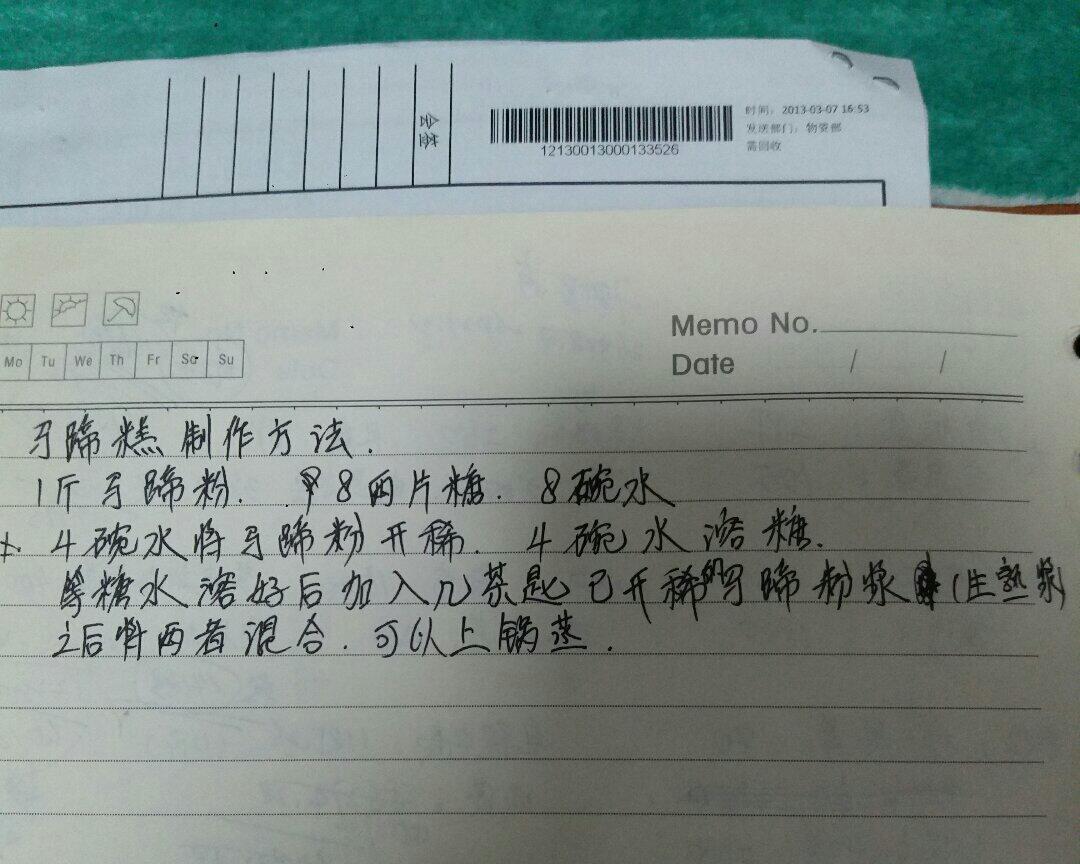 会签
12130013000133526
时间：2013-03-07 16:53
发送部门：物资部
需回收
Memo No.
Date / /
Mo Tu We Th Fr Sa Su
马蹄糕制作方法.
1斤马蹄粉. 8两片糖. 8碗水
4碗水将马蹄粉开稀. 4碗水溶糖.
等糖水溶好后加入几茶匙已开稀的马蹄粉浆(生熟浆)
之后将两者混合.可以上锅蒸.